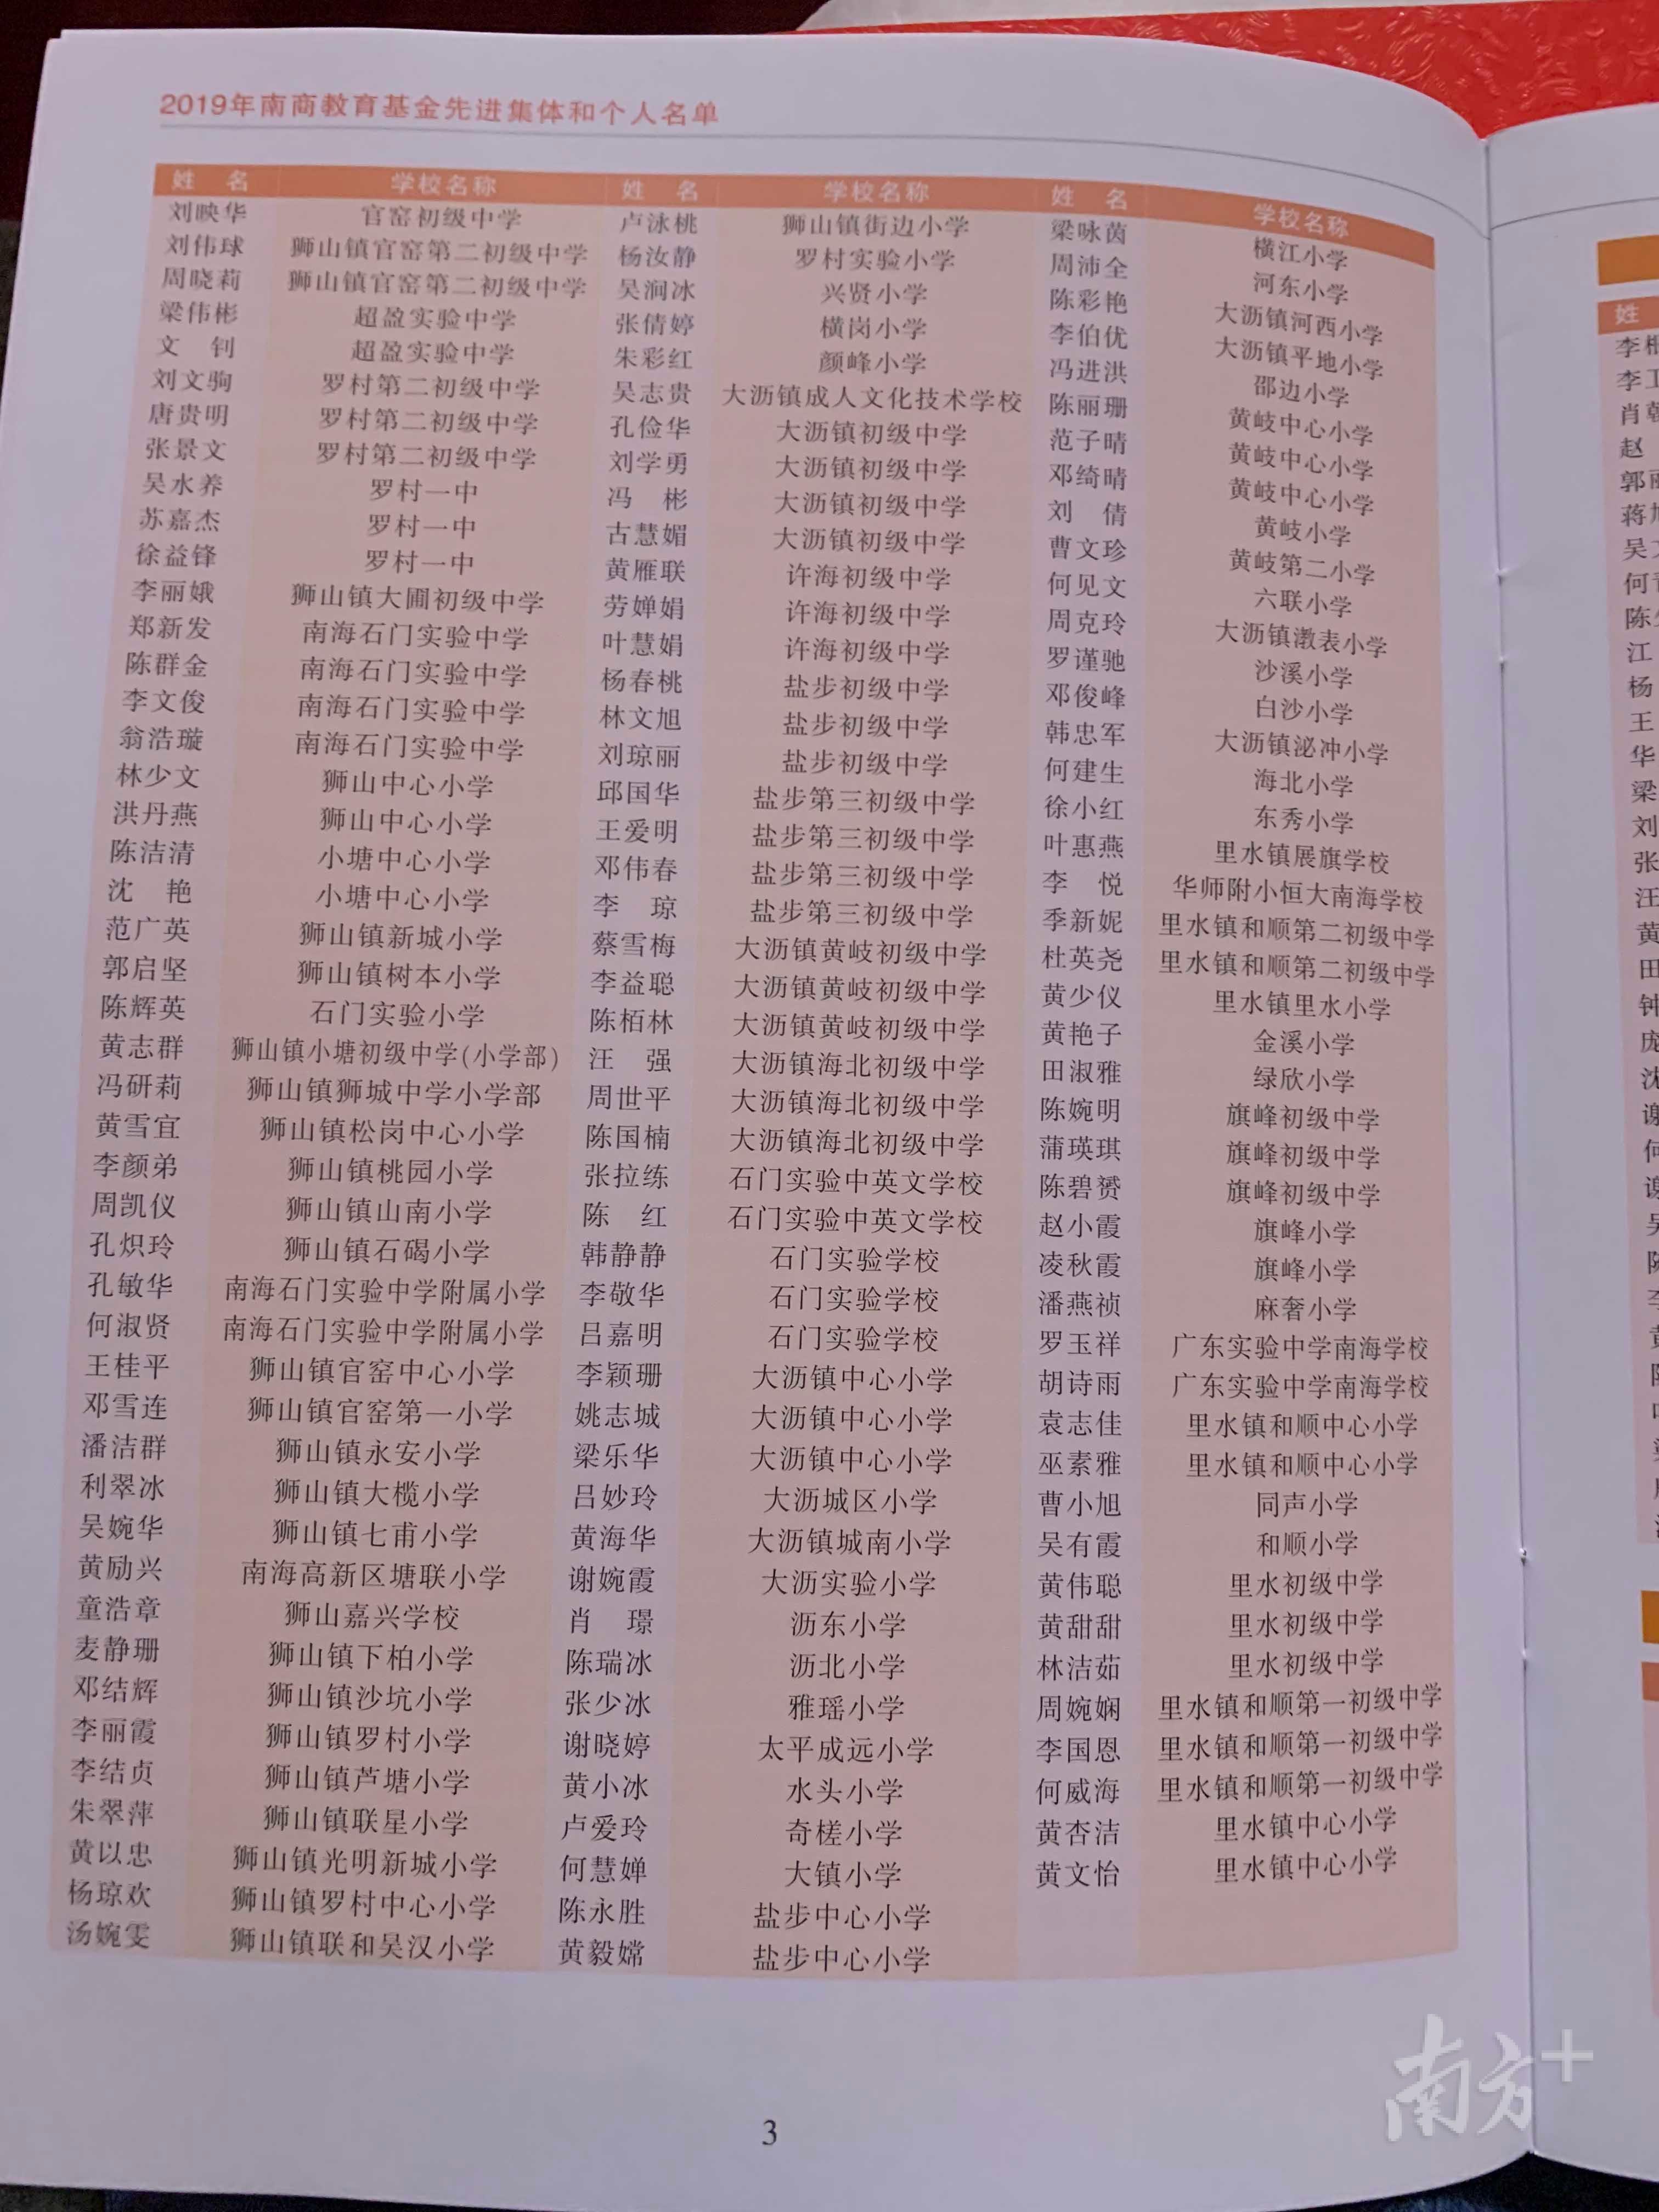 2019年南商教育基金先进集体和个人名单
姓 名 学校名称 姓 名 学校名称 姓 名 学校名称
刘映华 官窑初级中学 卢泳桃 狮山镇街边小学 梁咏茵 横江小学
刘伟球 狮山镇官窑第二初级中学 杨汝静 罗村实验小学 周沛全 河东小学
周晓莉 狮山镇官窑第二初级中学 吴润冰 兴贤小学 陈彩艳 大沥镇河西小学
梁伟彬 超盈实验中学 张倩婷 横岗小学 李伯优 大沥镇平地小学
文 钊 超盈实验中学 朱彩红 颜峰小学 冯进洪 邵边小学
刘文驹 罗村第二初级中学 吴志贵 大沥镇成人文化技术学校 陈丽珊 黄岐中心小学
唐贵明 罗村第二初级中学 孔俭华 大沥镇初级中学 范子晴 黄岐中心小学
张景文 罗村第二初级中学 刘学勇 大沥镇初级中学 邓绮晴 黄岐中心小学
吴水养 罗村一中 冯 彬 大沥镇初级中学 刘 倩 黄岐小学
苏嘉杰 罗村一中 古慧媚 大沥镇初级中学 曹文珍 黄岐第二小学
徐益锋 罗村一中 黄雁联 许海初级中学 何见文 六联小学
李丽娥 狮山镇大圃初级中学 劳婵娟 许海初级中学 周克玲 大沥镇漖表小学
郑新发 南海石门实验中学 叶慧娟 许海初级中学 罗谨驰 沙溪小学
陈群金 南海石门实验中学 杨春桃 盐步初级中学 邓俊峰 白沙小学
李文俊 南海石门实验中学 林文旭 盐步初级中学 韩忠军 大沥镇泌冲小学
翁浩璇 南海石门实验中学 刘琼丽 盐步初级中学 何建生 海北小学
林少文 狮山中心小学 邱国华 盐步第三初级中学 徐小红 东秀小学
洪丹燕 狮山中心小学 王爱明 盐步第三初级中学 叶惠燕 里水镇展旗学校
陈洁清 小塘中心小学 邓伟春 盐步第三初级中学 李 悦 华师附小恒大南海学校
沈 艳 小塘中心小学 李 琼 盐步第三初级中学 季新妮 里水镇和顺第二初级中学
范广英 狮山镇新城小学 蔡雪梅 大沥镇黄岐初级中学 杜英尧 里水镇和顺第二初级中学
郭启坚 狮山镇树本小学 李益聪 大沥镇黄岐初级中学 黄少仪 里水镇里水小学
陈辉英 石门实验小学 陈栢林 大沥镇黄岐初级中学 黄艳子 金溪小学
黄志群 狮山镇小塘初级中学(小学部) 汪 强 大沥镇海北初级中学 田淑雅 绿欣小学
冯研莉 狮山镇狮城中学小学部 周世平 大沥镇海北初级中学 陈婉明 旗峰初级中学
黄雪宜 狮山镇松岗中心小学 陈国楠 大沥镇海北初级中学 蒲瑛琪 旗峰初级中学
李颜弟 狮山镇桃园小学 张拉练 石门实验中英文学校 陈碧赟 旗峰初级中学
周凯仪 狮山镇山南小学 陈 红 石门实验中英文学校 赵小霞 旗峰小学
孔炽玲 狮山镇石碣小学 韩静静 石门实验学校 凌秋霞 旗峰小学
孔敏华 南海石门实验中学附属小学 李敬华 石门实验学校 潘燕祯 麻奢小学
何淑贤 南海石门实验中学附属小学 吕嘉明 石门实验学校 罗玉祥 广东实验中学南海学校
王桂平 狮山镇官窑中心小学 李颖珊 大沥镇中心小学 胡诗雨 广东实验中学南海学校
邓雪连 狮山镇官窑第一小学 姚志城 大沥镇中心小学 袁志佳 里水镇和顺中心小学
潘洁群 狮山镇永安小学 梁乐华 大沥镇中心小学 巫素雅 里水镇和顺中心小学
利翠冰 狮山镇大榄小学 吕妙玲 大沥城区小学 曹小旭 同声小学
吴婉华 狮山镇七甫小学 黄海华 大沥镇城南小学 吴有霞 和顺小学
黄励兴 南海高新区塘联小学 谢婉霞 大沥实验小学 黄伟聪 里水初级中学
童浩章 狮山嘉兴学校 肖 璟 沥东小学 黄甜甜 里水初级中学
麦静珊 狮山镇下柏小学 陈瑞冰 沥北小学 林洁茹 里水初级中学
邓结辉 狮山镇沙坑小学 张少冰 雅瑶小学 周婉娴 里水镇和顺第一初级中学
李丽霞 狮山镇罗村小学 谢晓婷 太平成远小学 李国恩 里水镇和顺第一初级中学
李结贞 狮山镇芦塘小学 黄小冰 水头小学 何威海 里水镇和顺第一初级中学
朱翠萍 狮山镇联星小学 卢爱玲 奇槎小学 黄杏洁 里水镇中心小学
黄以忠 狮山镇光明新城小学 何慧婵 大镇小学 黄文怡 里水镇中心小学
杨琼欢 狮山镇罗村中心小学 陈永胜 盐步中心小学
汤婉雯 狮山镇联和吴汉小学 黄毅嫦 盐步中心小学
3
南方+